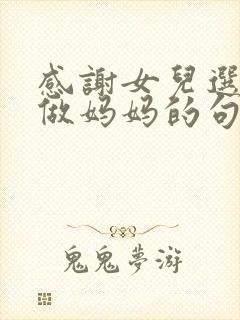 感謝女兒選
做妈妈的句
鬼鬼夢游